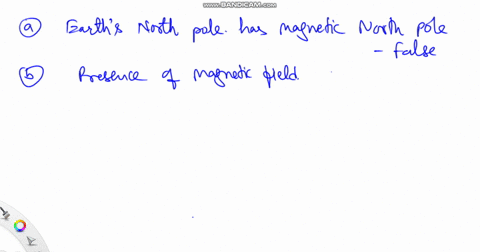 www.BANDICAM.com
(a) Earth's North pole. has magnetic North pole
- False
(b) Presence of Magnetic field